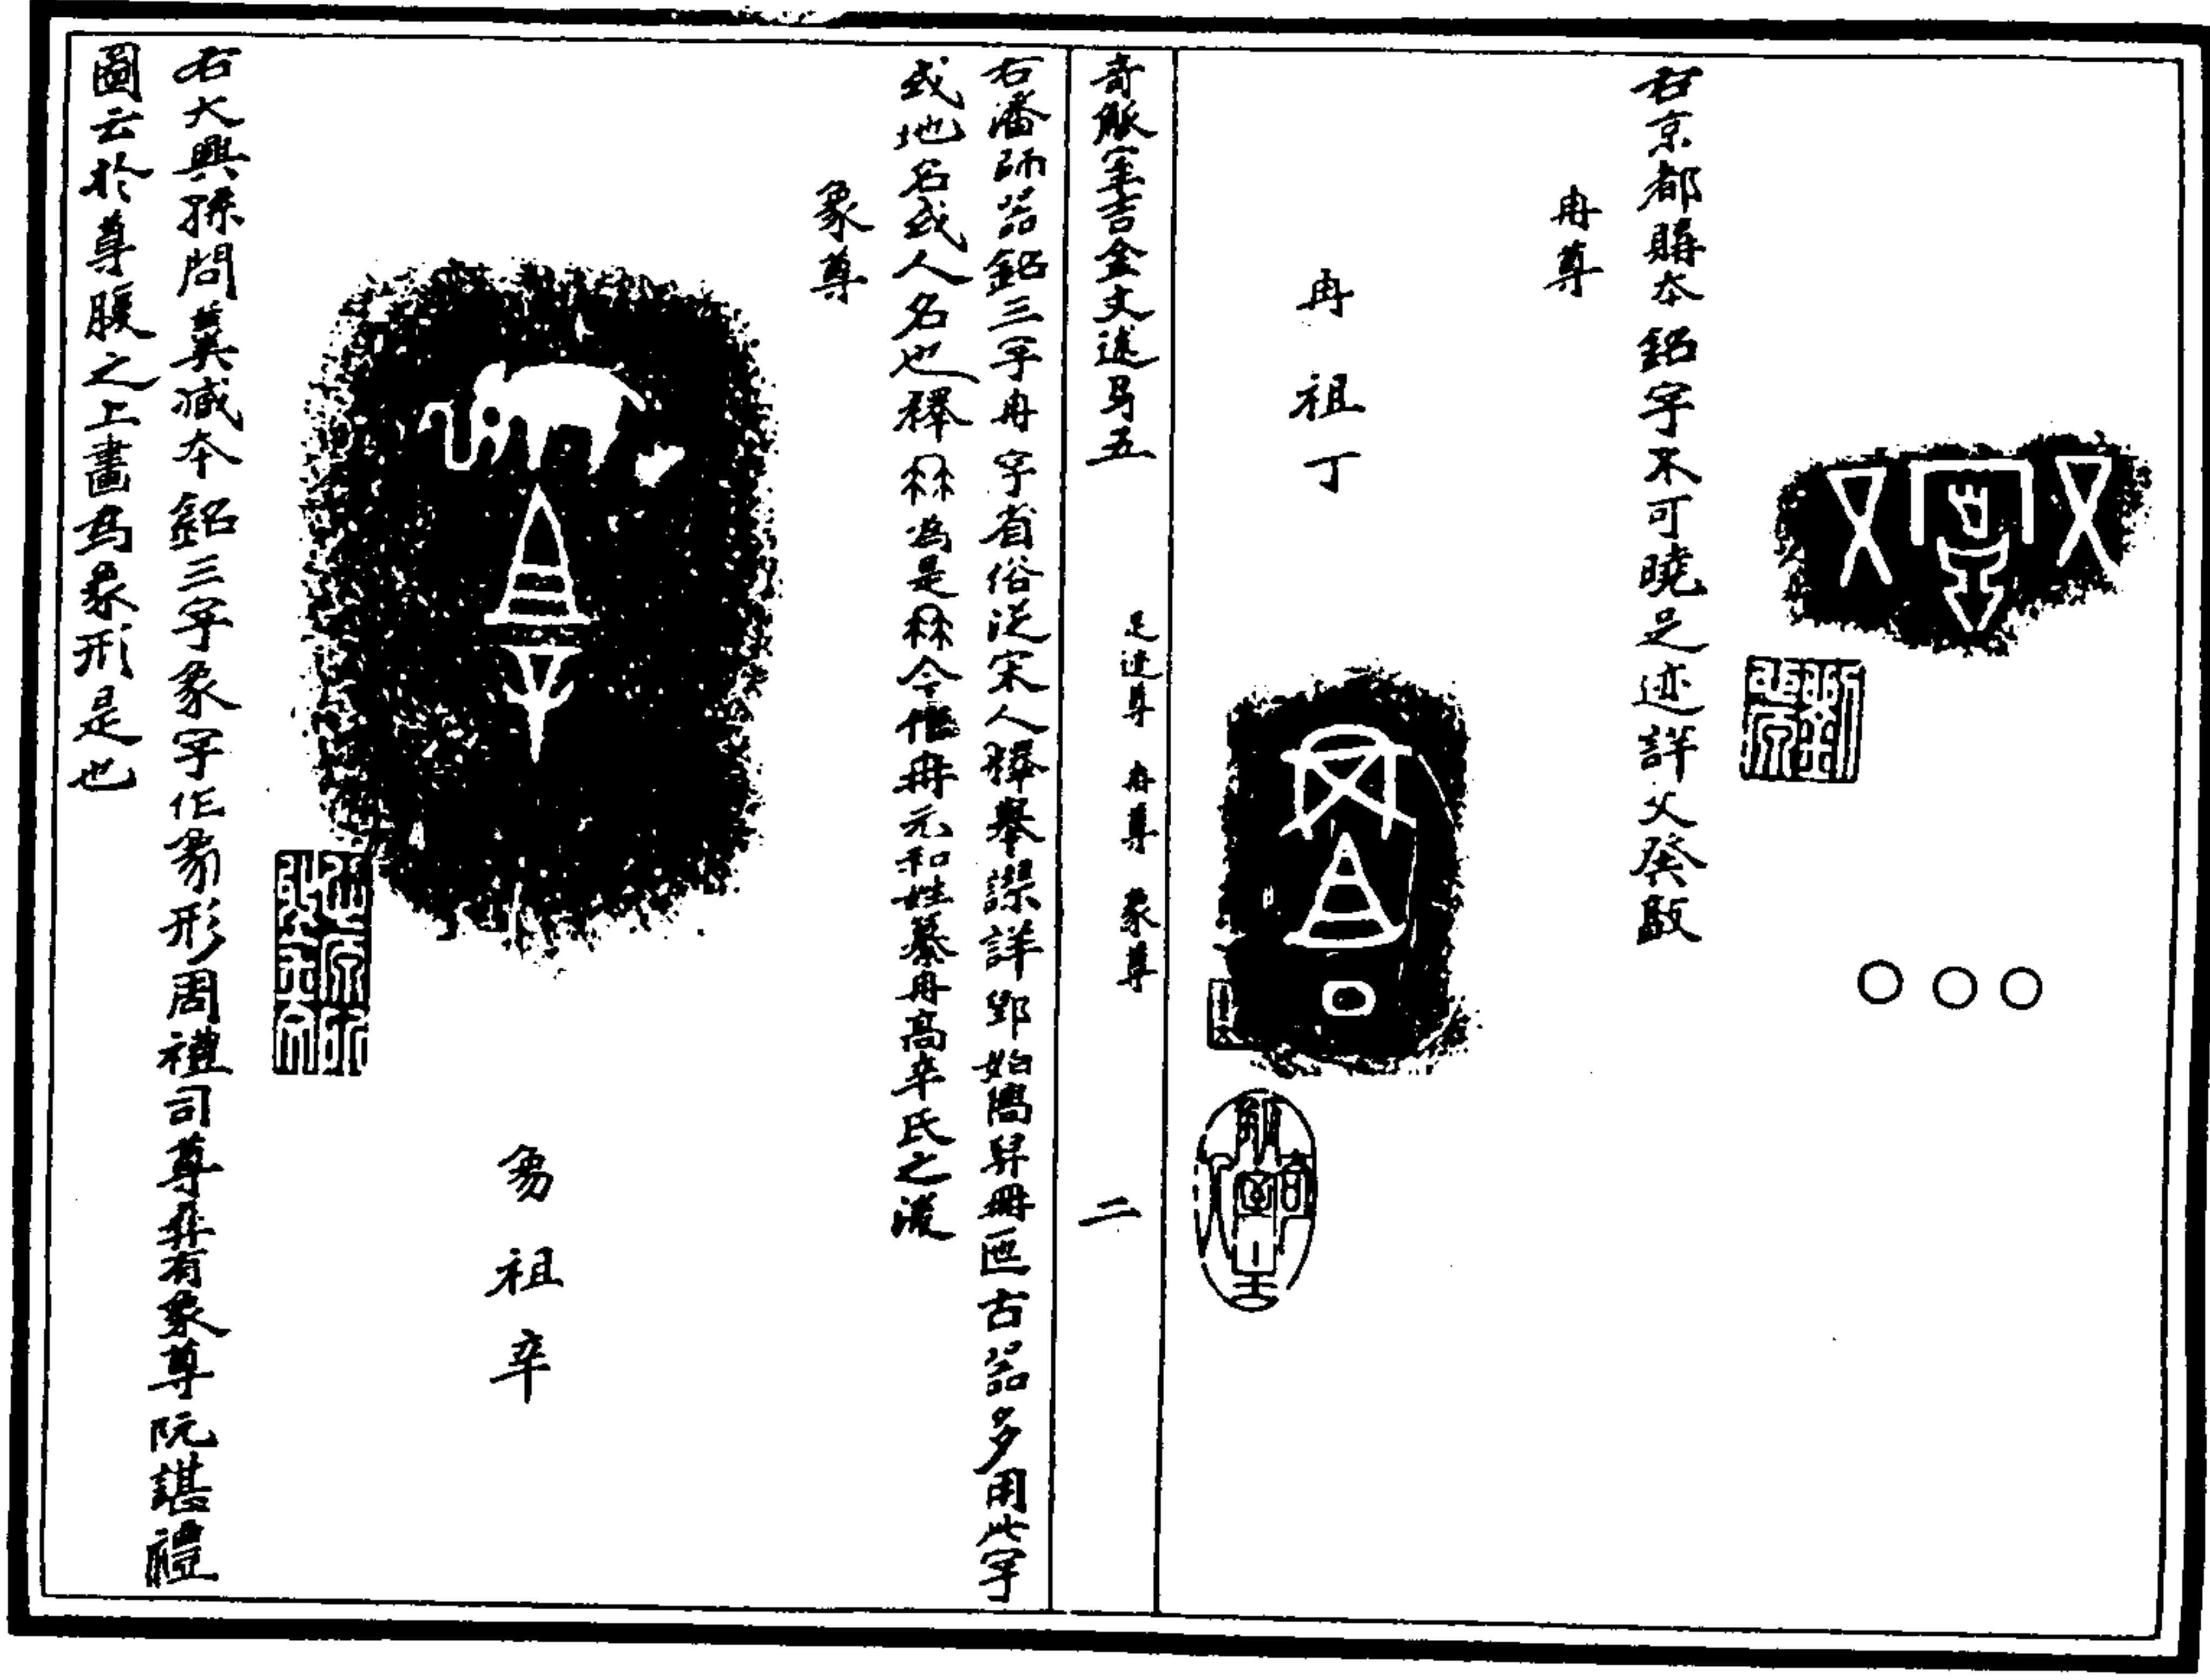 ○○○
右京都購本銘字不可曉足迹詳父癸㲃
冉尊
冉祖丁
奇觚室吉金文述弓五
足迹尊 冉尊 象尊
二
右潘師器銘三字冉字省俗從宋人釋舉誤詳郢始鬲舁冊匜古器多用此字
或地名或人名也釋為是今作冉元和姓纂冉高辛氏之後
象尊
象祖辛
右大興孫問羹臧本銘三字象字作象形周禮司尊彝有象尊阮諶禮
圖云於尊腹之上畫為象形是也